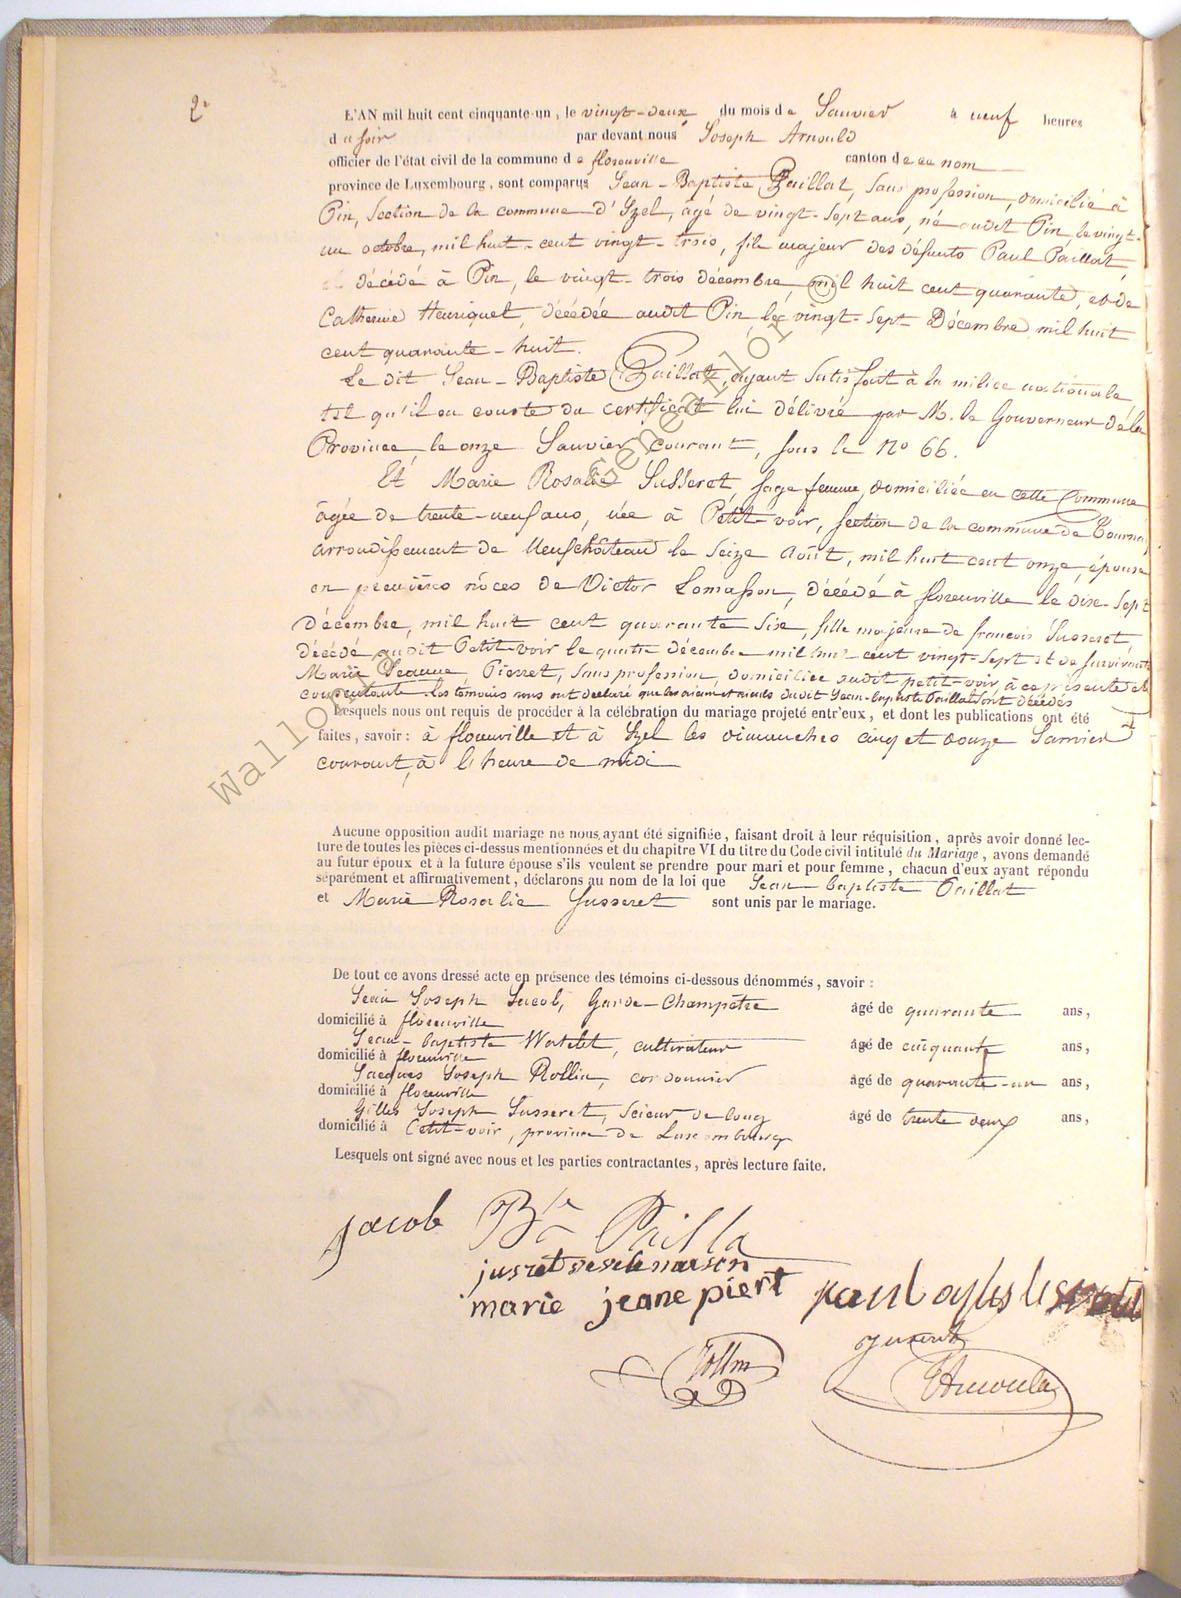 2e
L'AN mil huit cent cinquante-un, le vingt-deux du mois de Janvier à neuf heures
du soir par devant nous Joseph Arnould
officier de l'état civil de la commune de florenville canton de ce nom
province de Luxembourg, sont comparus Jean-Baptiste Paillat, Sans profession, domicilié à
Pin, Section de la commune d'Izel, agé de vingt-sept ans, né audit Pin, le vingt-
un octobre, mil huit-cent vingt-trois, fils majeur des défunts Paul Paillat,
décédé à Pin, le vingt-trois décembre, mil huit cent quarante, et de
Catherine Henriquet, décédée audit Pin, le vingt-sept Décembre mil huit
cent quarante-huit.
Le dit Jean-Baptiste Paillat, ayant Satisfait à la milice nationale
tel qu'il en conste du certificat lui délivré par M. le Gouverneur de la
Province, le onze Janvier courant, sous le No 66.
Et Marie Rosalie Jusseret, sage femme, domiciliée en cette Commune
âgée de trente-neuf ans, née à Petit-voir, section de la commune de Tournay
arrondissement de Neufchâteau le Seize Août, mil huit cent onze, épouse
en premières nôces de Victor Lomasson, décédé à florenville le dix-sept
Décembre, mil huit cent quarante Six, fille majeure de francois Jusseret,
décédé audit Petit-voir le quatre décembre mil huit cent vingt-sept et de survivante
Marie Jeanne Pierret, Sans profession, domiciliée audit petit-voir, à ce présente et
consentante. Les témoins nous ont déclaré que les aieux et aieules du dit Jean-baptiste Paillat sont décédés
Lesquels nous ont requis de procéder à la célébration du mariage projeté entr'eux, et dont les publications ont été
faites, savoir: à florenville et à Izel les dimanches cinq et douze Janvier
courant, à l'heure de midi
Aucune opposition audit mariage ne nous ayant été signifiée, faisant droit à leur réquisition, après avoir donné lec-
ture de toutes les pièces ci-dessus mentionnées et du chapitre VI du titre du Code civil intitulé du Mariage, avons demandé
au futur époux et à la future épouse s'ils veulent se prendre pour mari et pour femme, chacun d'eux ayant répondu
séparément et affirmativement, déclarons au nom de la loi que Jean baptiste Paillat
et Marie Rosalie Jusseret sont unis par le mariage.
De tout ce avons dressé acte en présence des témoins ci-dessous dénommés, savoir:
Jean Joseph Jacob, Garde-Champêtre âgé de quarante ans,
domicilié à florenville
Jean-baptiste Watelet, cultivateur âgé de cinquante ans,
domicilié à florenville
Jacques Joseph Rollin, cordonnier âgé de quarante-un ans,
domicilié à florenville
Gilles Joseph Jusseret, Scieur de long âgé de trente deux ans,
domicilié à Petit-voir, province de Luxembourg
Lesquels ont signé avec nous et les parties contractantes, après lecture faite.
Jacob Bte Pailla
marie jeane piert
Rollin
Jusseret
Arnould
Wallonia © Genealor